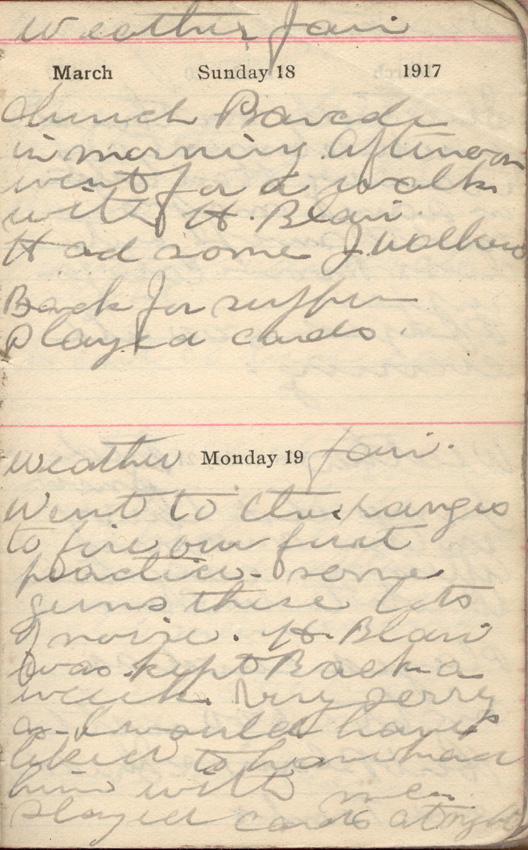 Weather fair
March Sunday 18 1917
Church Parade
in morning. Afternoon
went for a walk
with H. Blair
Had some J. Walkers
Back for supper
played cards.
Weather Monday 19 fair.
Went to the ranges
to fire our first
practice. some
guns there lots
of noise. H. Blair
was kept Back a
week. Very sorry
as I would have
liked to have had
him with me.
played cards at night